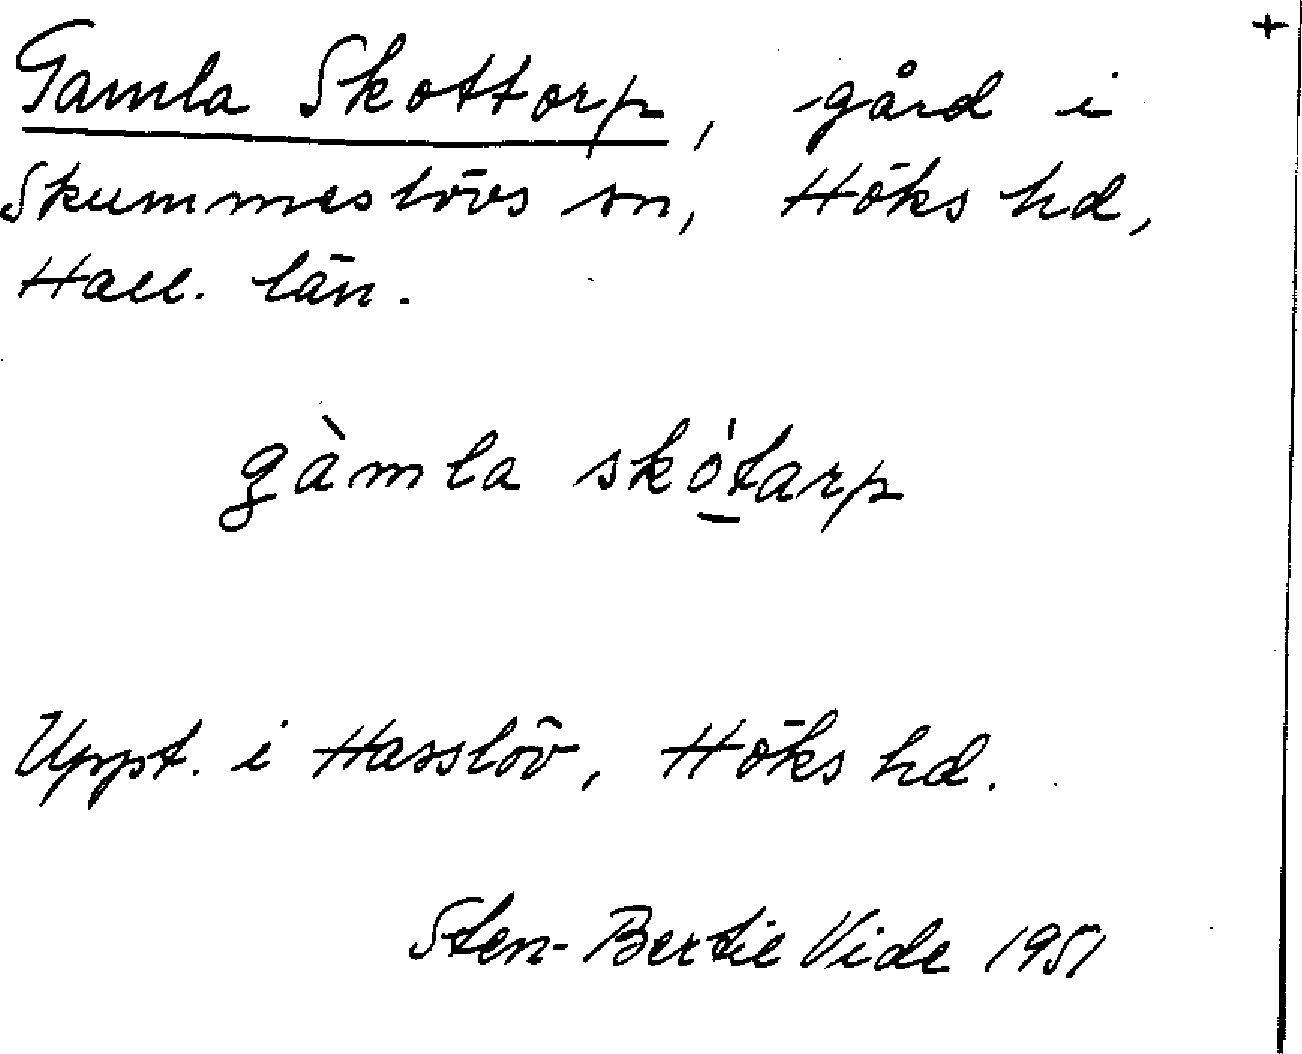 +
Gamla Skottorp, gård i
Skummeslövs sn, Höks hd,
Hall. län.
gàmla skó̠tarp
Uppt. i Hasslöv, Höks hd.
Sten-Bertil Vide 1951